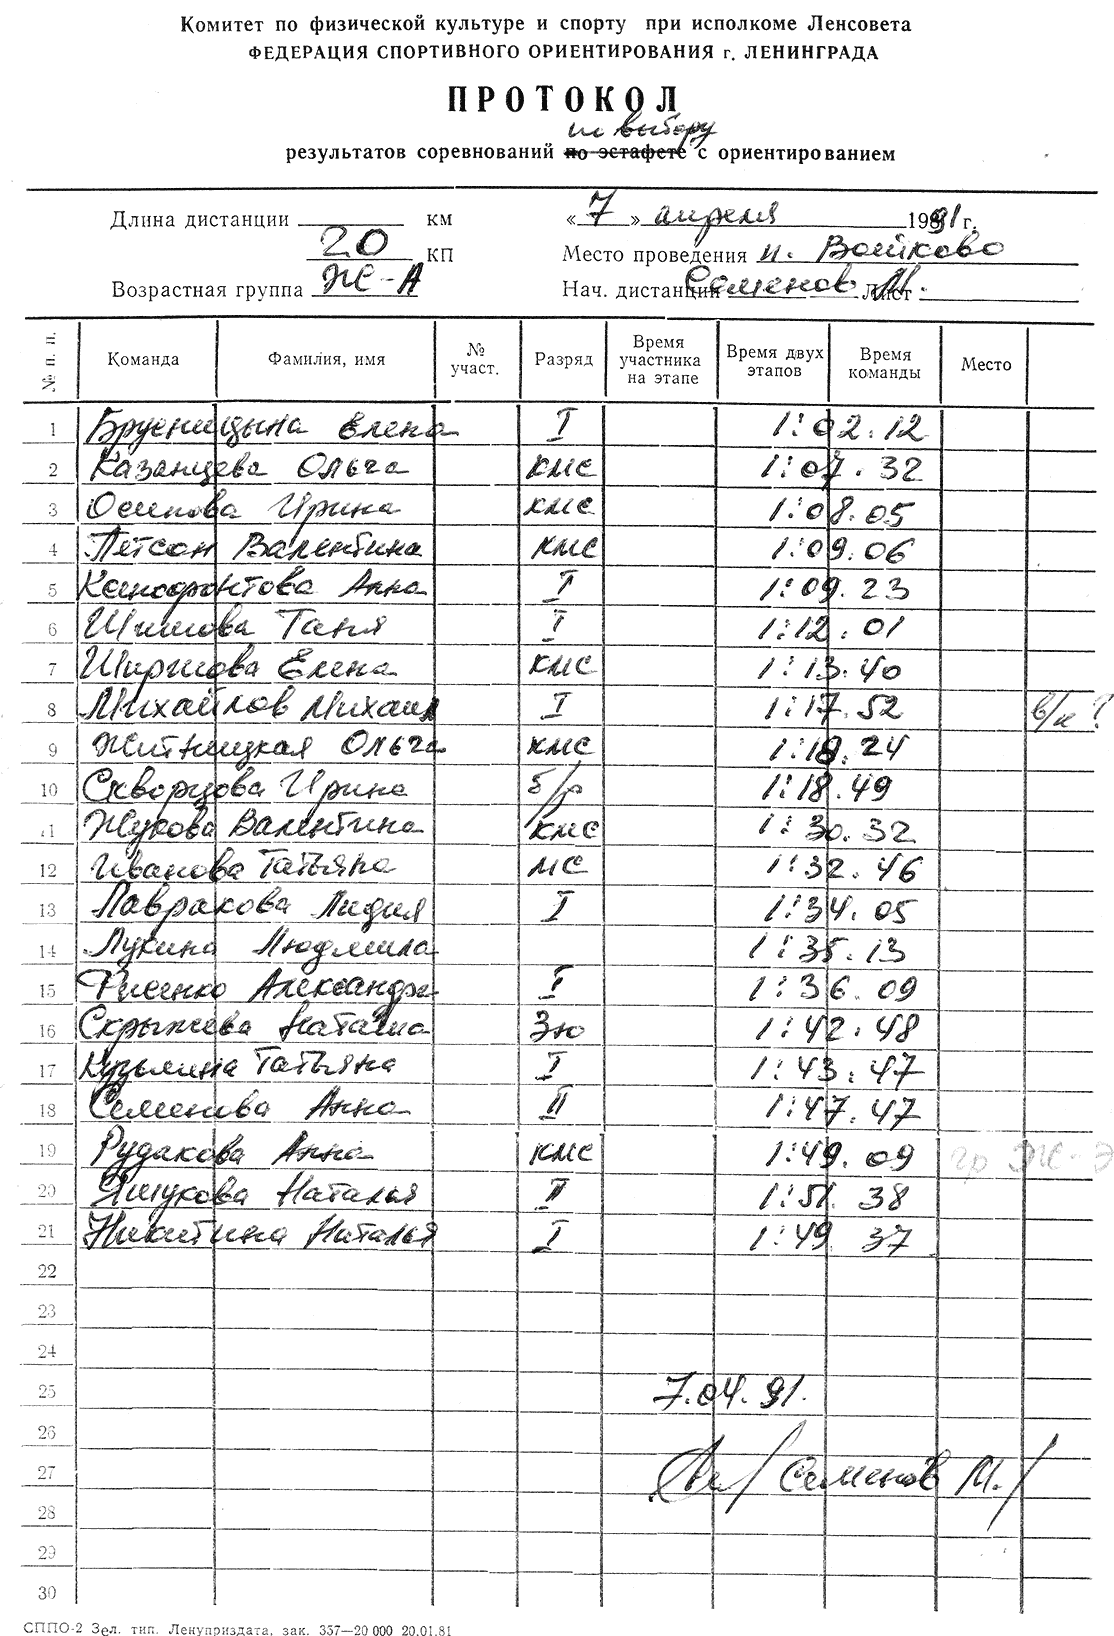 Комитет по физической культуре и спорту при исполкоме Ленсовета
ФЕДЕРАЦИЯ СПОРТИВНОГО ОРИЕНТИРОВАНИЯ г. ЛЕНИНГРАДА
ПРОТОКОЛ
по выбору
результатов соревнований по эстафете с ориентированием
Длина дистанции км «7» апреля 1991 г.
20 КП Место проведения п. Войково
Возрастная группа Ж-А Нач. дистанции Семенов М. Лист
№ п. п. Команда Фамилия, имя № участ. Разряд Время участника на этапе Время двух этапов Время команды Место
1 Брусницына Елена I 1:02.12
2 Казанцева Ольга кмс 1:07.32
3 Осипова Ирина кмс 1:08.05
4 Петсон Валентина кмс 1:09.06
5 Ксенофонтова Анна I 1:09.23
6 Таня I 1:12.01
7 Ширшова Елена кмс 1:13.40
8 Михайлов Михаил I 1:17.52 в/к?
9 Житницкая Ольга кмс 1:18.24
10 Скворцова Ирина б/р 1:18.49
11 Жукова Валентина кмс 1:30.32
12 Иванова Татьяна мс 1:32.46
13 Лавракова Лидия I 1:34.05
14 Лукина Людмила 1:35.13
15 Фисенко Александра I 1:36.09
16 Наташа 3ю 1:42.48
17 Кузьмина Татьяна I 1:43.47
18 Семенова Анна II 1:47.47
19 Рудакова Анна кмс 1:49.09 гр Ж-Э
20 Яшукова Наталья II 1:51.38
21 Никитина Наталья I 1:49 37
22
23
24
25 7.04.91.
26
27 /Семенов М./
28
29
30
СППО-2 Зел. тип. Ленуприздата, зак. 357—20 000 20.01.81